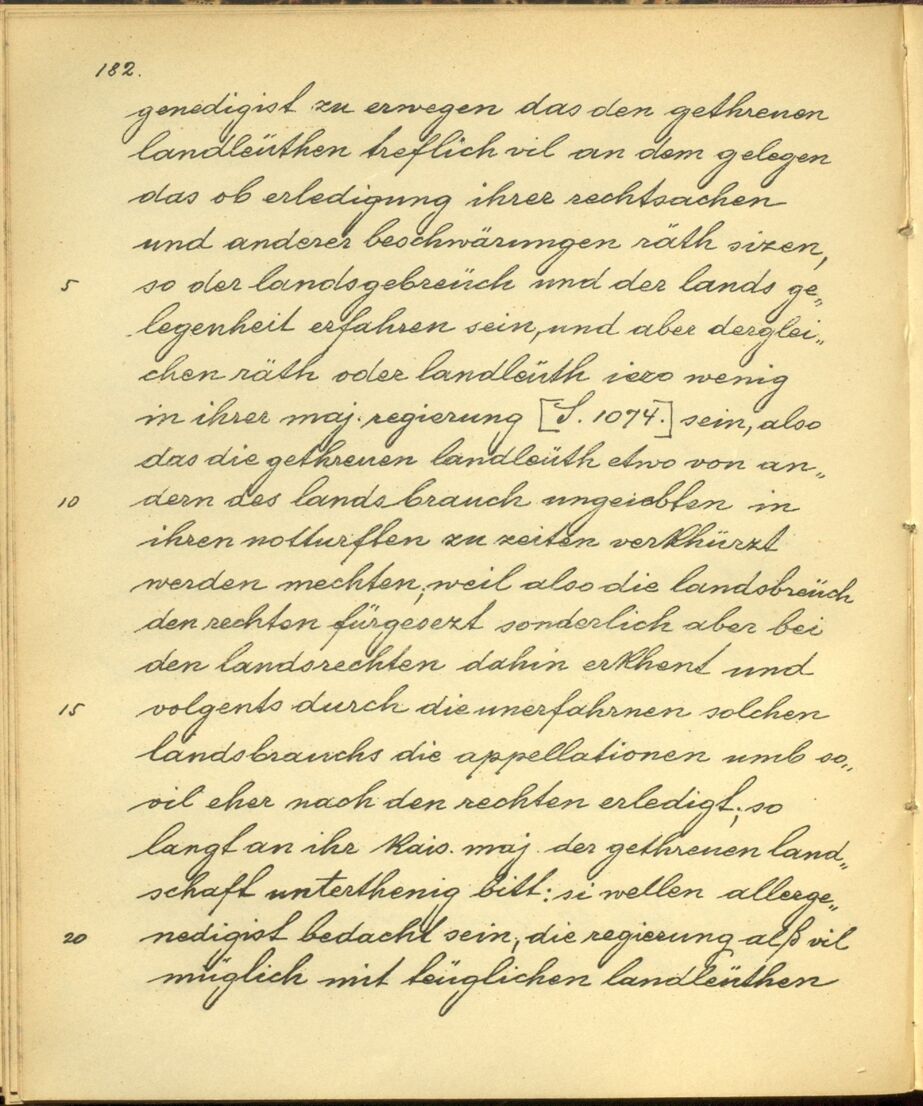 182.
genedigist zu erwegen das den gethreuen
landleüthen treflich vil an dem gelegen
das ob erledigung ihrer rechtsachen
und anderer beschwärungen räth sizen,
5 so der landsgebreüch und der lands ge„
legenheit erfahren sein, und aber derglei„
chen räth oder landleüth iezo wenig
in ihrer maj. regierung [S. 1074.] sein, also
das die gethreuen landleüth etwo von an„
10 dern des landsbrauch ungeiebten in
ihren notturften zu zeiten verkhürzt
werden mechten; weil also die landsbreüch
den rechten fürgesezt sonderlich aber bei
den landsrechten dahin erkhent und
15 volgents durch die unerfahrnen solchen
landsbrauchs die appellationen umb so„
vil eher nach den rechten erledigt; so
langt an ihr kais. maj. der gethreuen land„
schaft unterthenig bitt: si wellen allerge„
20 nedigist bedacht sein, die regierung alß vil
müglich mit teüglichen landleüthen